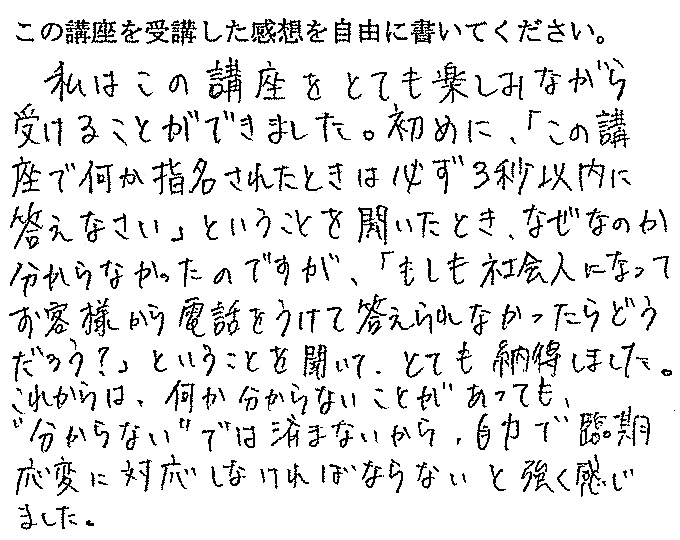 この講座を受講した感想を自由に書いてください。
私はこの講座をとても楽しみながら
受けることができました。初めに、「この講
座で何か指名されたときは必ず3秒以内に
答えなさい」ということを聞いたとき、なぜなのか
分からなかったのですが、「もしも社会人になって
お客様から電話をうけて答えられなかったらどう
だろう?」ということを聞いて、とても納得しました。
これからは、何か分からないことがあっても、
"分からない"では済まないから、自力で臨期
応変に対応しなければならないと強く感じ
ました。